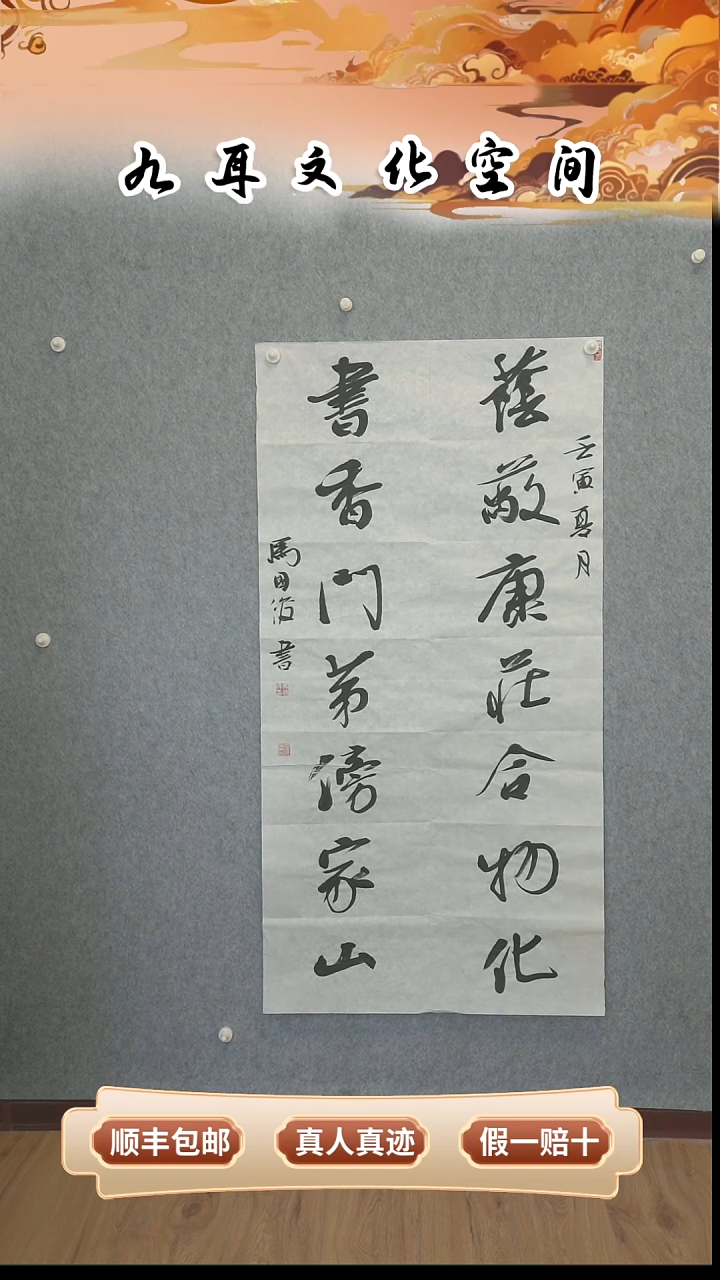 九耳文化空间
蔭敞康莊合物化
壬寅夏月
書香門苐傍家山
馬国俊書
顺丰包邮
真人真迹
假一赔十